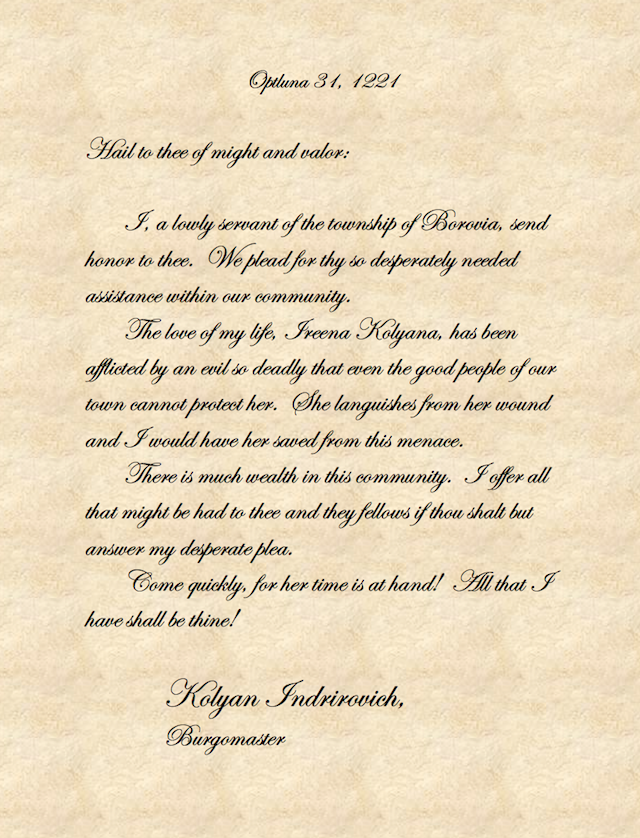 Optluna 31, 1221
Hail to thee of might and valor:
I, a lowly servant of the township of Borovia, send
honor to thee. We plead for thy so desperately needed
assistance within our community.
The love of my life, Ireena Kolyana, has been
afflicted by an evil so deadly that even the good people of our
town cannot protect her. She languishes from her wound
and I would have her saved from this menace.
There is much wealth in this community. I offer all
that might be had to thee and they fellows if thou shalt but
answer my desperate plea.
Come quickly, for her time is at hand! All that I
have shall be thine!
Kolyan Indrirovich,
Burgomaster